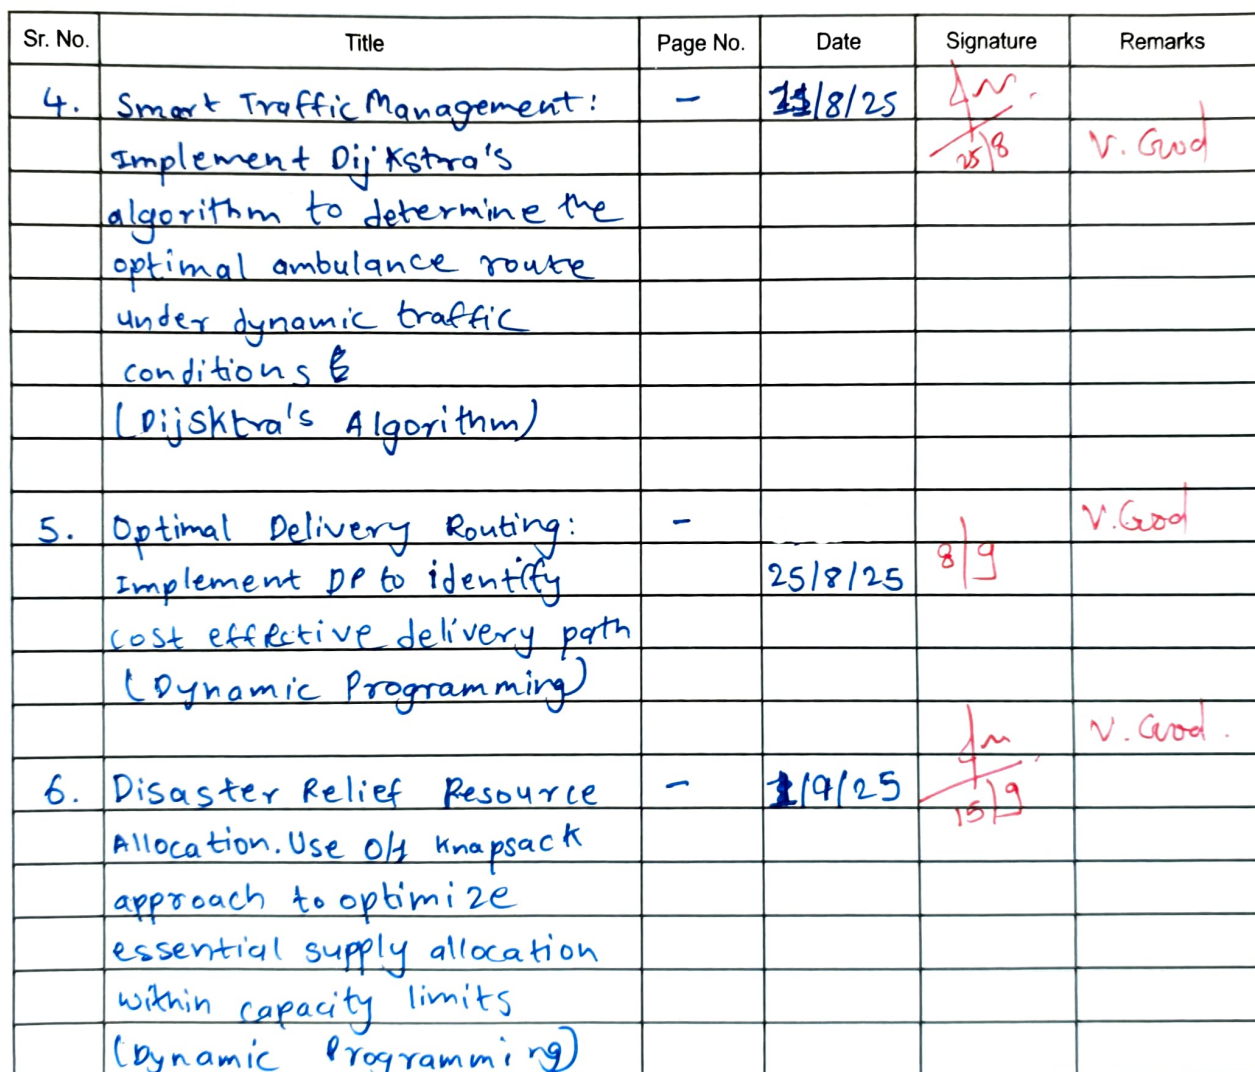 Sr. No. Title Page No. Date Signature Remarks
4. Smart Traffic Management: - 11/8/25
Implement Dijkstra's 25/8 V. Good
algorithm to determine the
optimal ambulance route
under dynamic traffic
conditions
(Dijsktra's Algorithm)
V. Good
5. Optimal Delivery Routing: -
Implement DP to identify 25/8/25 8/9
cost effective delivery path
(Dynamic Programming)
V. Good.
6. Disaster Relief Resource - 1/9/25
Allocation. Use 0/1 Knapsack 15/9
approach to optimize
essential supply allocation
within capacity limits
(Dynamic Programming)